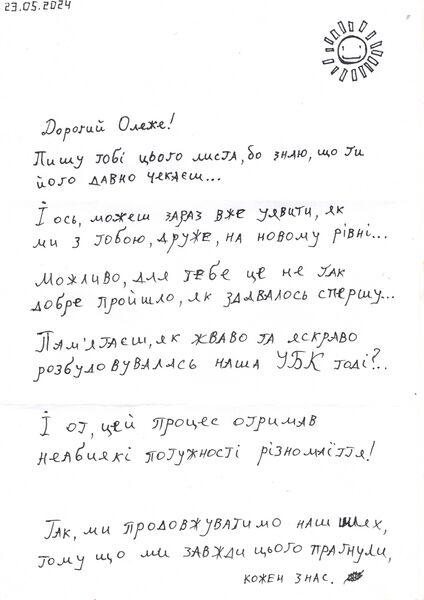 23.05.2024
Дорогий Олеже!
Пишу тобі цього листа, бо знаю, що ти
його давно чекаєш...
І ось, можеш зараз вже уявити, як
ми з тобою, друже, на новому рівні...
Можливо, для тебе це не так
добре пройшло, як здавалось спершу...
Пам'ятаєш, як жваво та яскраво
розбудовувалась наша УБК тоді?..
І от, цей процес отримав
неабиякі потужності різномаїття!
Так, ми продовжуватимо наш шлях,
тому що ми завжди цього прагнули,
кожен знає.